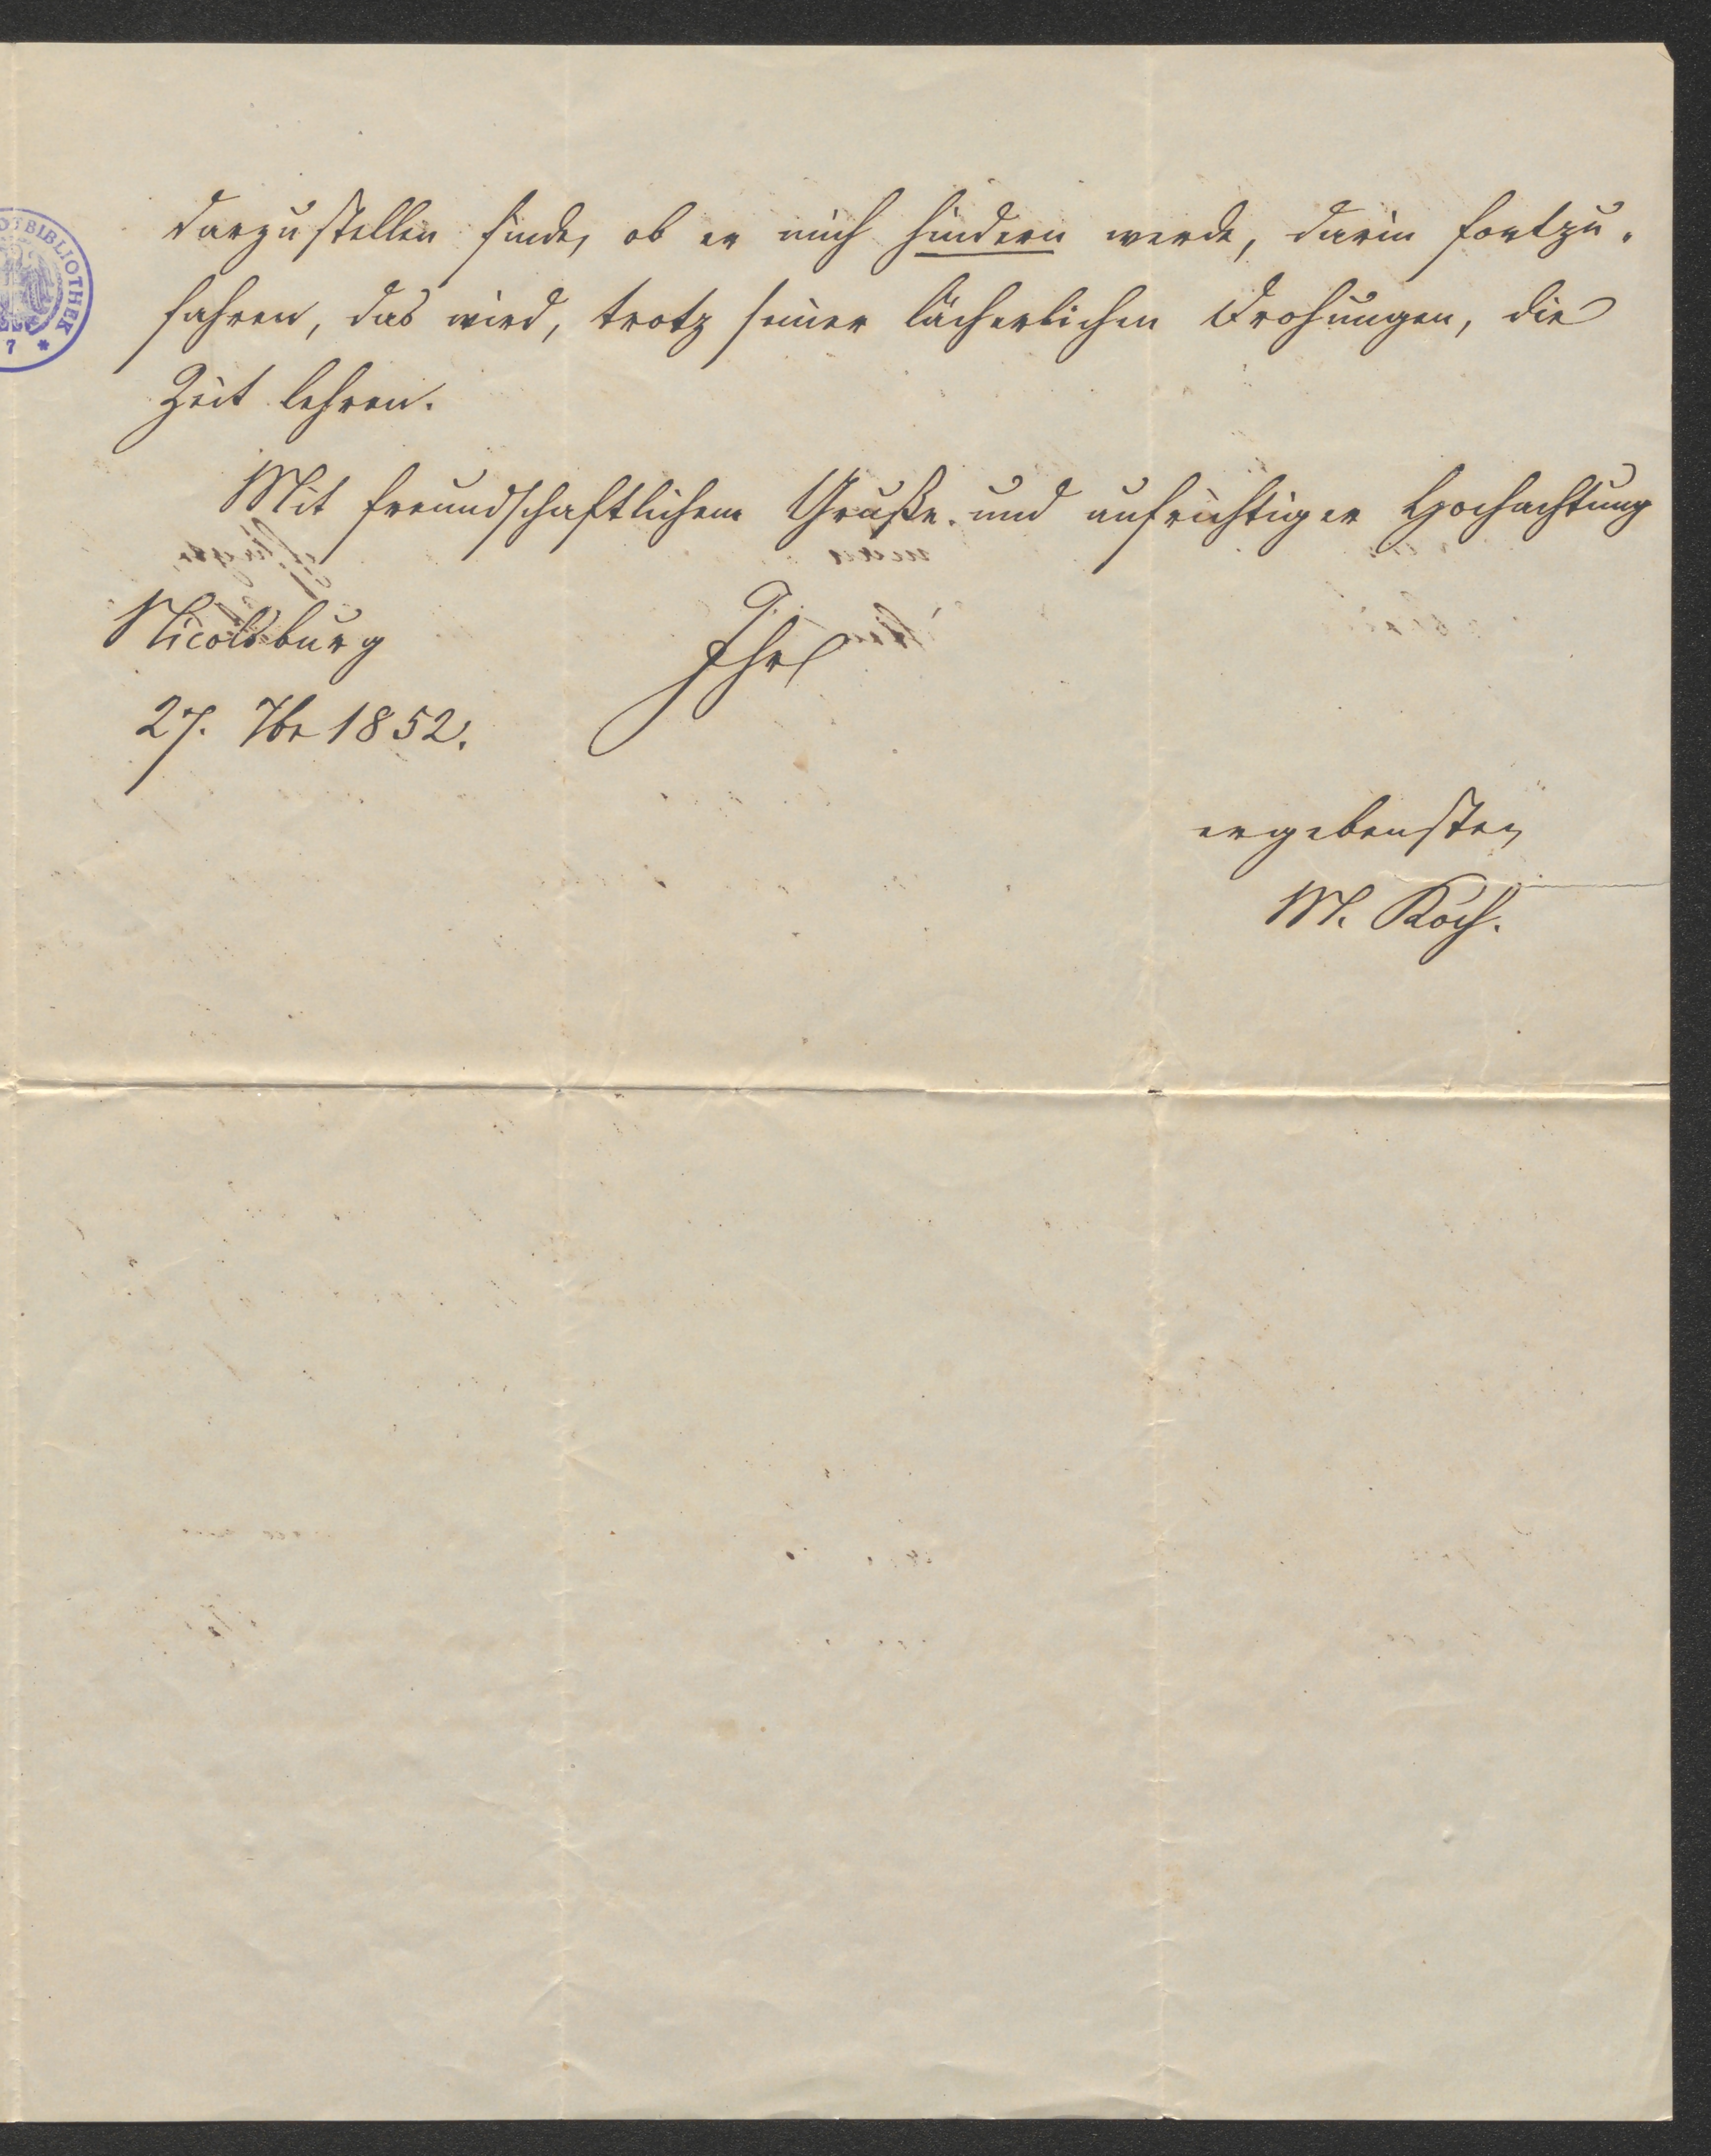 darzustellen finde, ob er mich hindern werde, darin fortzu-
fahren, das wird, trotz seiner lächerlichen Drohungen, die
Zeit lehren.
Mit freundschaftlichem Gruße und aufrichtiger Hochachtung
Nicolsburg
27. 7br 1852.
Ihr
ergebenster
M. Koch.
BIBLIOTHEK
7 *